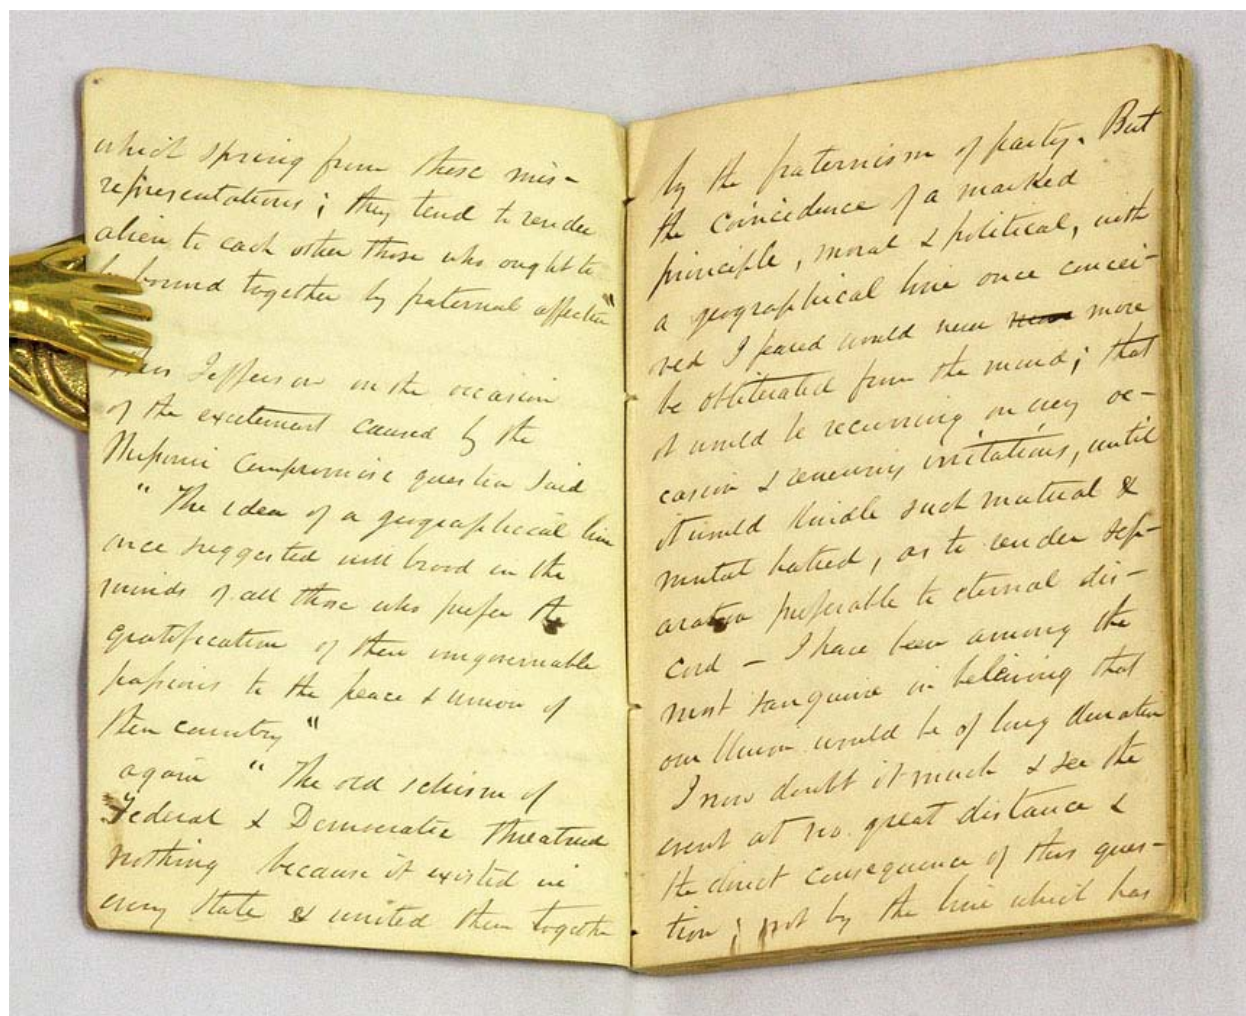 which spring from these mis-
representations; they tend to render
alien to each other those who ought to
bound together by fraternal affection"
Jefferson on the occasion
of the excitement caused by the
Missouri Compromise question said
"The idea of a geographical line
once suggested will brood in the
minds of all those who prefer the
gratification of their ungovernable
passions to the peace & union of
their country"
again "The old schism of
Federal & Democratic threatned
nothing because it existed in
every State & united them together
by the fraternism of party. But
the coincidence of a marked
principle, moral & political, with
a geographical line once concei-
ved I feared would never more
be obliterated from the mind; that
it would be recurring on every oc-
casion & renewing irritations, until
it would kindle such mutual &
mortal hatred, as to render sep-
aration preferable to eternal dis-
cord - I have been among the
most sanguine in believing that
our Union would be of long duration
I now doubt it much & see the
event at no great distance &
the direct consequence of this ques-
tion; not by the line which has